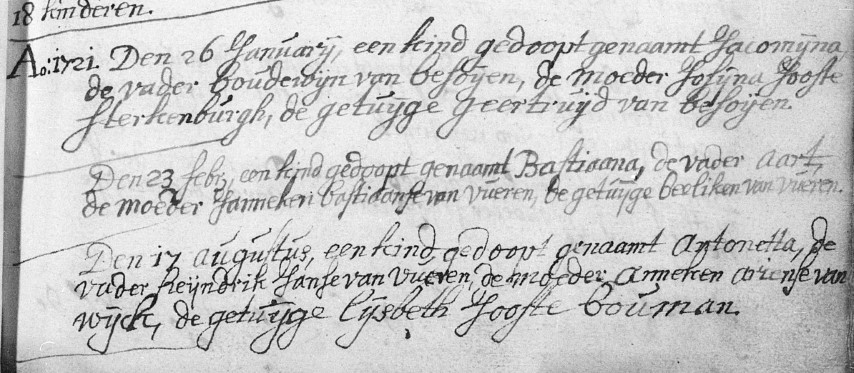 18 kinderen.
Ao: 1721. Den 26 Januarij, een kind gedoopt genaamt Jacomijna,
de vader boudewijn van besoijen, de moeder Josijna Jooste
Sterkenburgh, de getuijge geertruijd van besoijen.
Den 23 feb:, een kind gedoopt genaamt Bastiaana, de vader aart,
de moeder Janneken bastiaanse van vueren, de getuijge beeliken van vueren.
Den 17 augustus, een kind gedoopt genaamt antonetta, de
vader heijndrik Janse van vueren, de moeder anneken ariense van
wijck, de getuijge lijsbeth Jooste bouman.